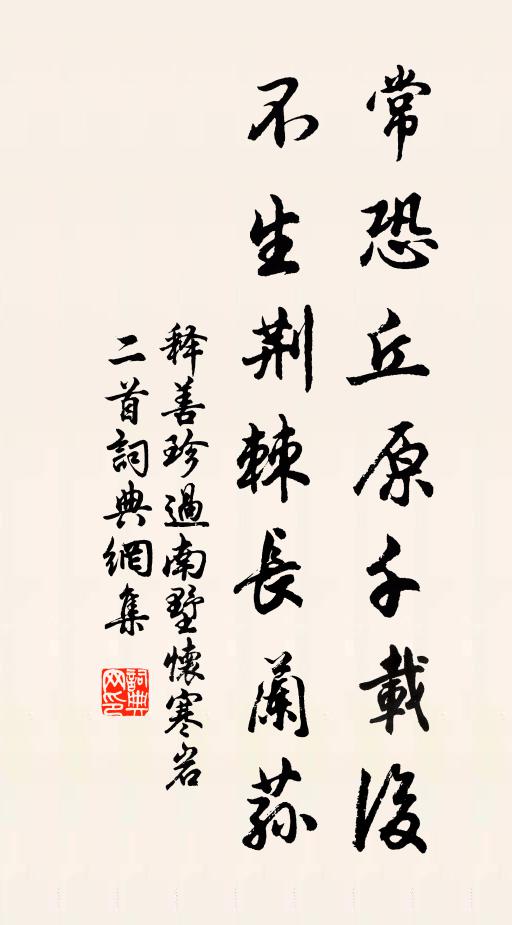 常恐丘原千載後
不生荆棘長蘭荪
释善珍過南墅懷寒岩
二首詞典網集
詞典网印